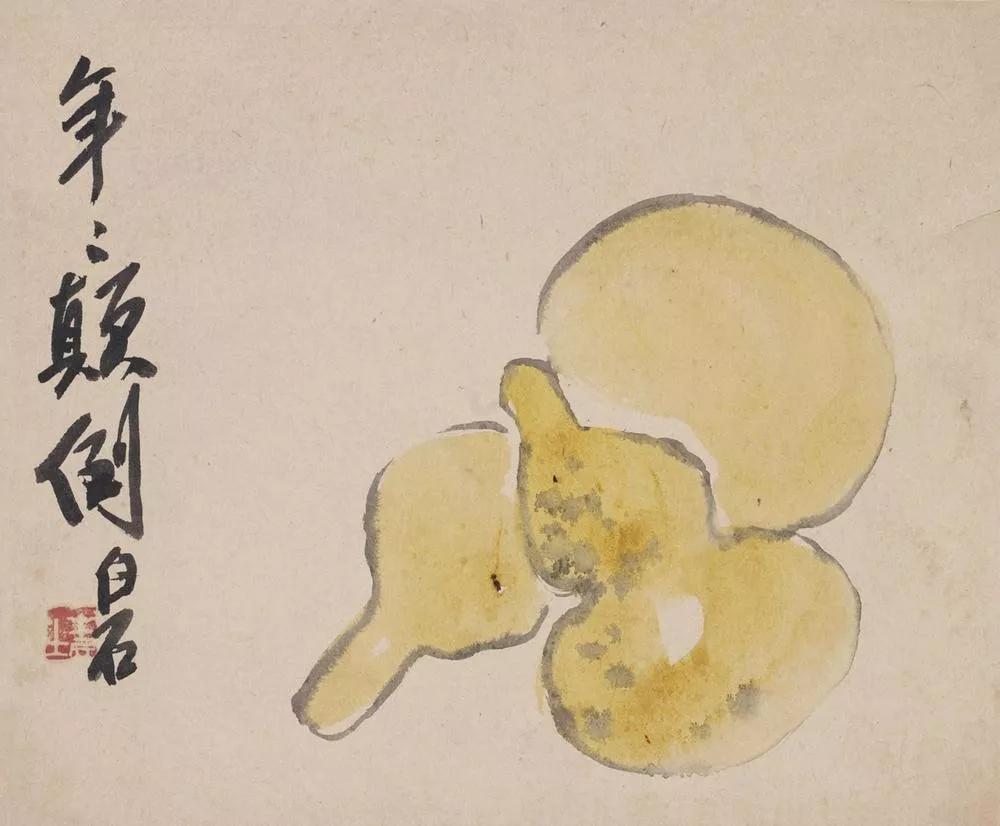 年〻顛倒白石